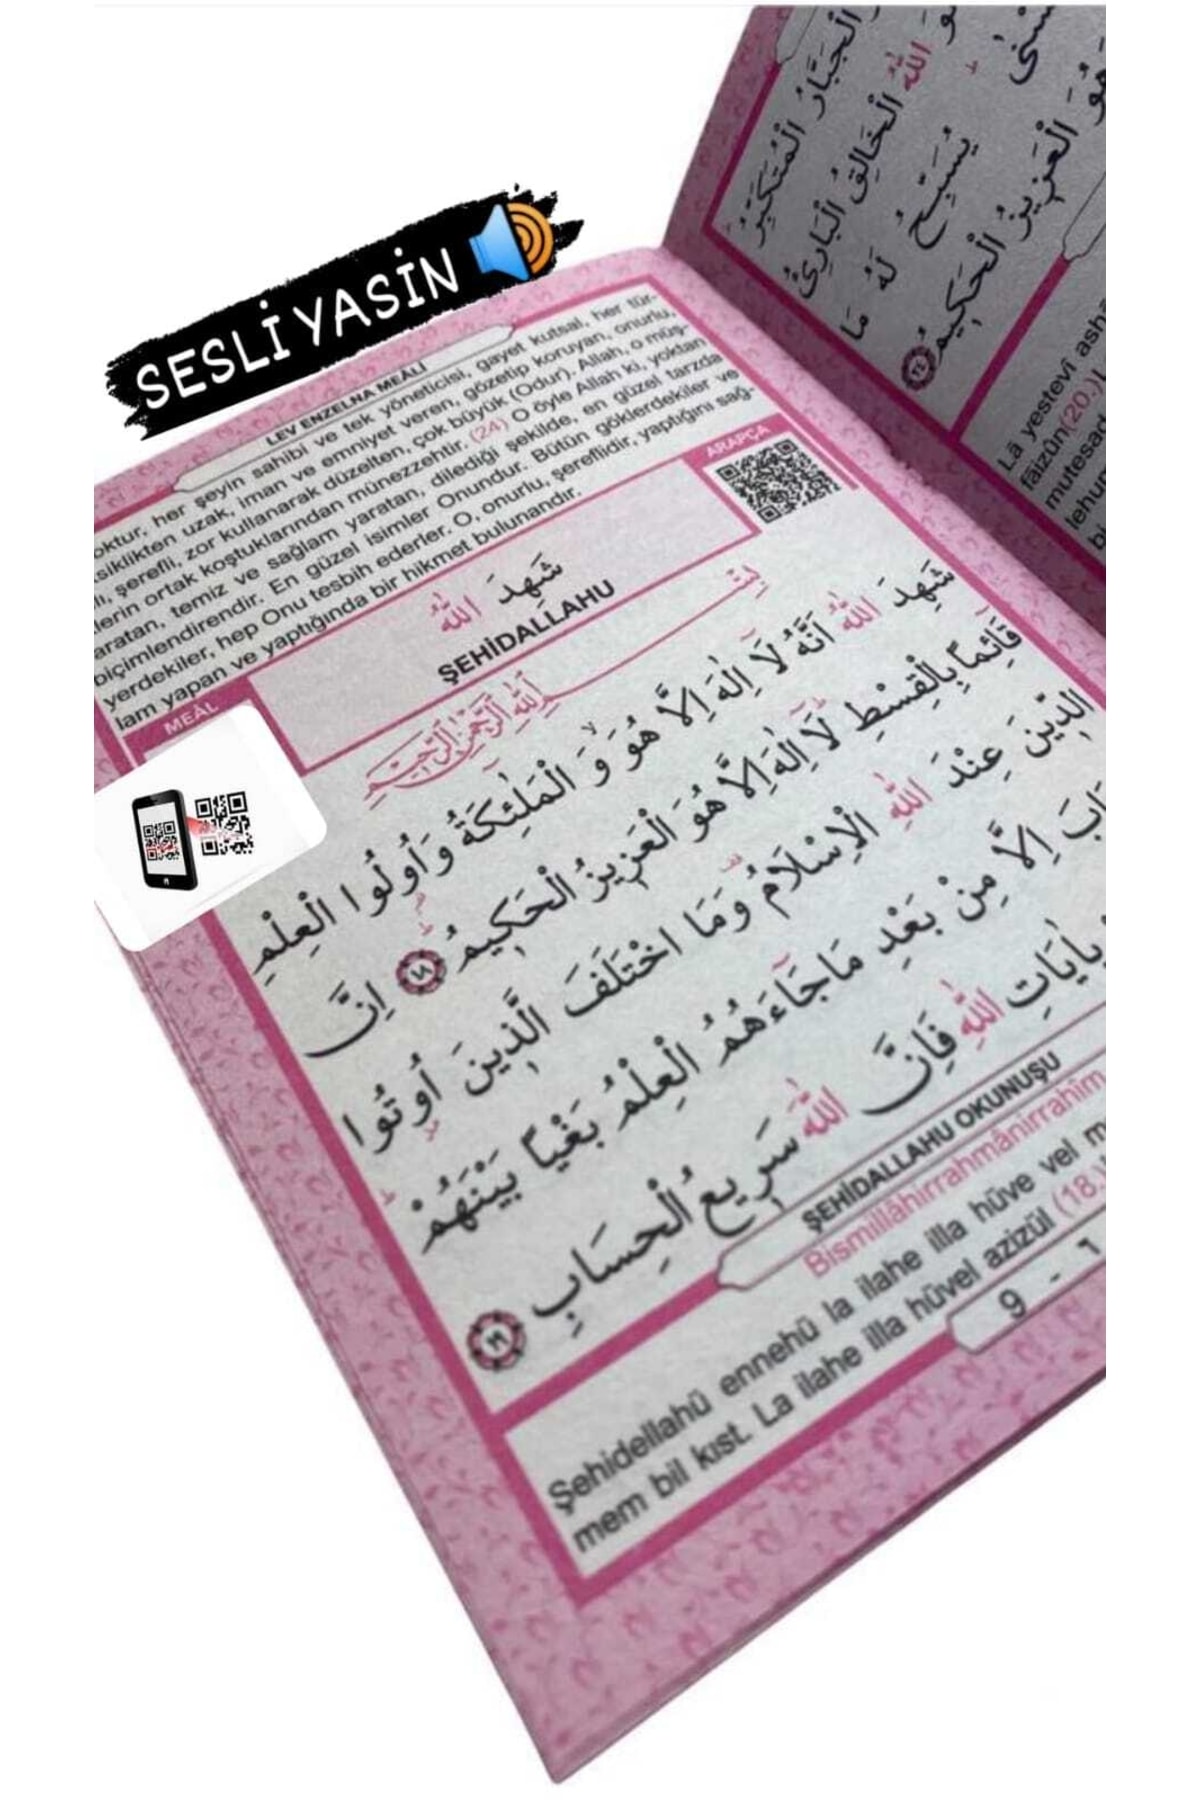 SESLİ YASİN
LEV ENZELNA MEÂLİ
oktur, her şeyin sahibi ve tek yöneticisi, gayet kutsal, her tür-
siklikten uzak, iman ve emniyet veren, gözetip koruyan, onurlu,
şerefli, zor kullanarak düzelten, çok büyük (Odur). Allah, o müş-
lerin ortak koştuklarından münezzehtir. (24) O öyle Allah ki, yoktan
aratan, temiz ve sağlam yaratan, dilediği şekilde, en güzel tarzda
biçimlendirendir. En güzel isimler Onundur. Bütün göklerdekiler ve
yerdekiler, hep Onu tesbih ederler. O, onurlu, şereflidir, yaptığını sağ-
lam yapan ve yaptığında bir hikmet bulunandır.
MEÂL
ARAPÇA
شَهِدَ اللّٰهُ
ŞEHİDALLAHU
بِسْمِ اللّٰهِ الرَّحْمٰنِ الرَّحِيمِ
شَهِدَ اللّٰهُ اَنَّهُ لَٓا اِلٰهَ اِلَّا هُوَۙ وَ الْمَلٰٓئِكَةُ وَاُو۬لُوا الْعِلْمِ
قَٓائِمًا بِالْقِسْطِۜ لَٓا اِلٰهَ اِلَّا هُوَ الْعَزٖيزُ الْحَكٖيمُۜ ﴿١٨﴾ اِنَّ
الدّٖينَ عِنْدَ اللّٰهِ الْاِسْلَامُ وَمَا اخْتَلَفَ الَّذٖينَ اُو۫تُوا
ابَ اِلَّا مِنْ بَعْدِ مَاجَٓاءَهُمُ الْعِلْمُ بَغْيًا بَيْنَهُمْۜ
بِاٰيَاتِ اللّٰهِ فَاِنَّ اللّٰهَ سَرٖيعُ الْحِسَابِ ﴿١٩﴾
ŞEHİDALLAHU OKUNUŞU
Bismillâhirrahmânirrahim
Şehidellahü ennehü la ilahe illa hüve vel m
mem bil kıst. La ilahe illa hüvel azizül (18.)
9 - 1
الْجَبَّارُ الْمُتَكَبِّرُ
وَ اللّٰهُ الْخَالِقُ الْبَارِئُ
يُسَبِّحُ لَهُ مَا
هُوَ الْعَزٖيزُ الْحَكٖيمُ ﴿٢٤﴾
Lâ yestevî ashâ
fâizûn(20.)L
mutesad
lehum
bi